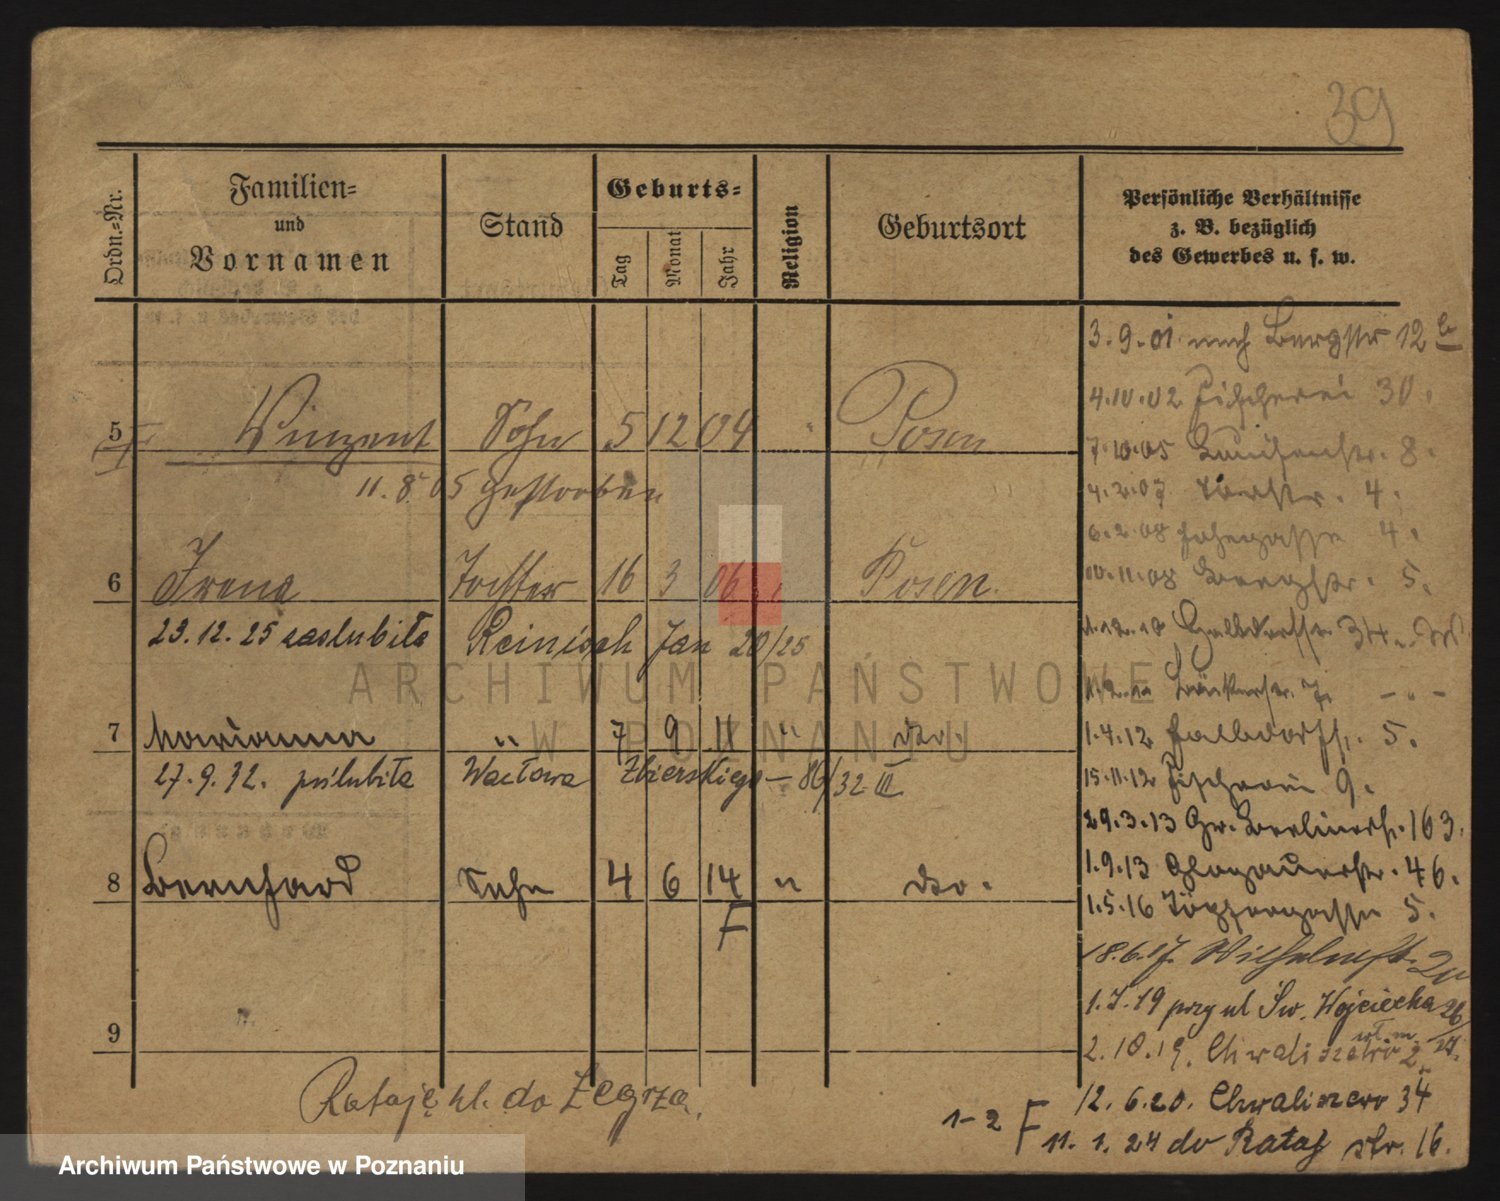 39
Ordn.-Nr.
Familien-
und
Vornamen
Stand
Geburts-
Tag
Monat
Jahr
Religion
Geburtsort
Persönliche Verhältnisse
z. B. bezüglich
des Gewerbes u. s. w.
3.9.01 nach Bergstr 12 b
4.10.02 Fischerei 30.
5 Vinzent Sohn 5 12 04 " Posen
7.10.05 8.
11.8.05 gestorben
4.2.07 Torstr. 4.
6.2.08 4.
6 Irena Tochter 16 3 06 " Posen.
10.11.08 Bergstr. 5.
23.12.25 zaslubiła Reinisch Jan 20/25
Halbdorfstr. 34
Bäckerstr. 7
7 Marianna " 7 9 11 " dto.
1.4.12 Halbdorfstr. 5.
27.9.32. poślubiła Wacława Zbierskiego – 86/32 III
15.11.12 Fischerei 9.
29.3.13 Gr. Berlinerstr. 163.
8 Bernhard Sohn 4 6 14 " dto.
1.9.13 Glogauerstr. 46.
F
1.5.16 Töpfergasse 5.
18.6.17. Wilhelmstr. 20
1.7.19 przy ul Św. Wojciecha 26/27.
9
2.10.19. Chwaliszewo 2
Rataje kl. do Żegrza.
12.6.20. Chwaliszewo 34
1-2 F 11.1.24 do Rataj str. 16.
ARCHIWUM PAŃSTWOWE
W POZNANIU
Archiwum Państwowe w Poznaniu